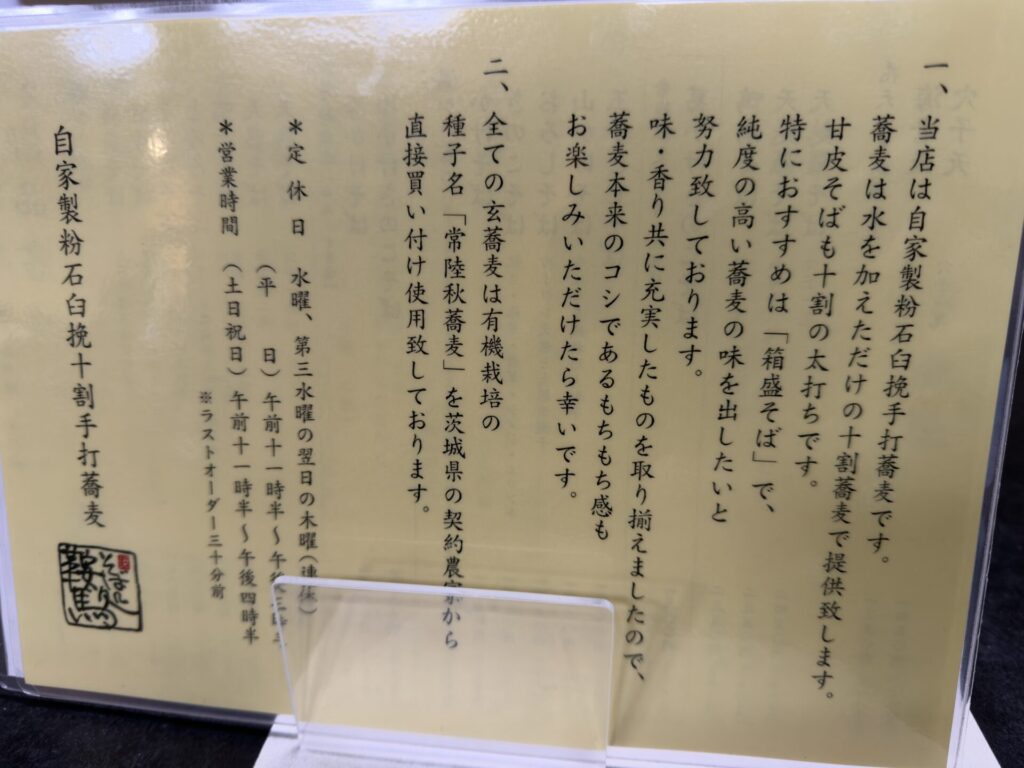 一、当店は自家製粉石臼挽手打蕎麦です。
蕎麦は水を加えただけの十割蕎麦で提供致します。
甘皮そばも十割の太打ちです。
特におすすめは「箱盛そば」で、
純度の高い蕎麦の味を出したいと
努力致しております。
味・香り共に充実したものを取り揃えましたので、
蕎麦本来のコシであるもちもち感も
お楽しみいただけたら幸いです。
二、全ての玄蕎麦は有機栽培の
種子名「常陸秋蕎麦」を茨城県の契約農家から
直接買い付け使用致しております。
＊定休日 水曜、第三水曜の翌日の木曜（連休）
＊営業時間 （平日）午前十一時半～午後
（土日祝日）午前十一時半～午後四時半
※ラストオーダー三十分前
自家製粉石臼挽十割手打蕎麦
そば処
鞍馬